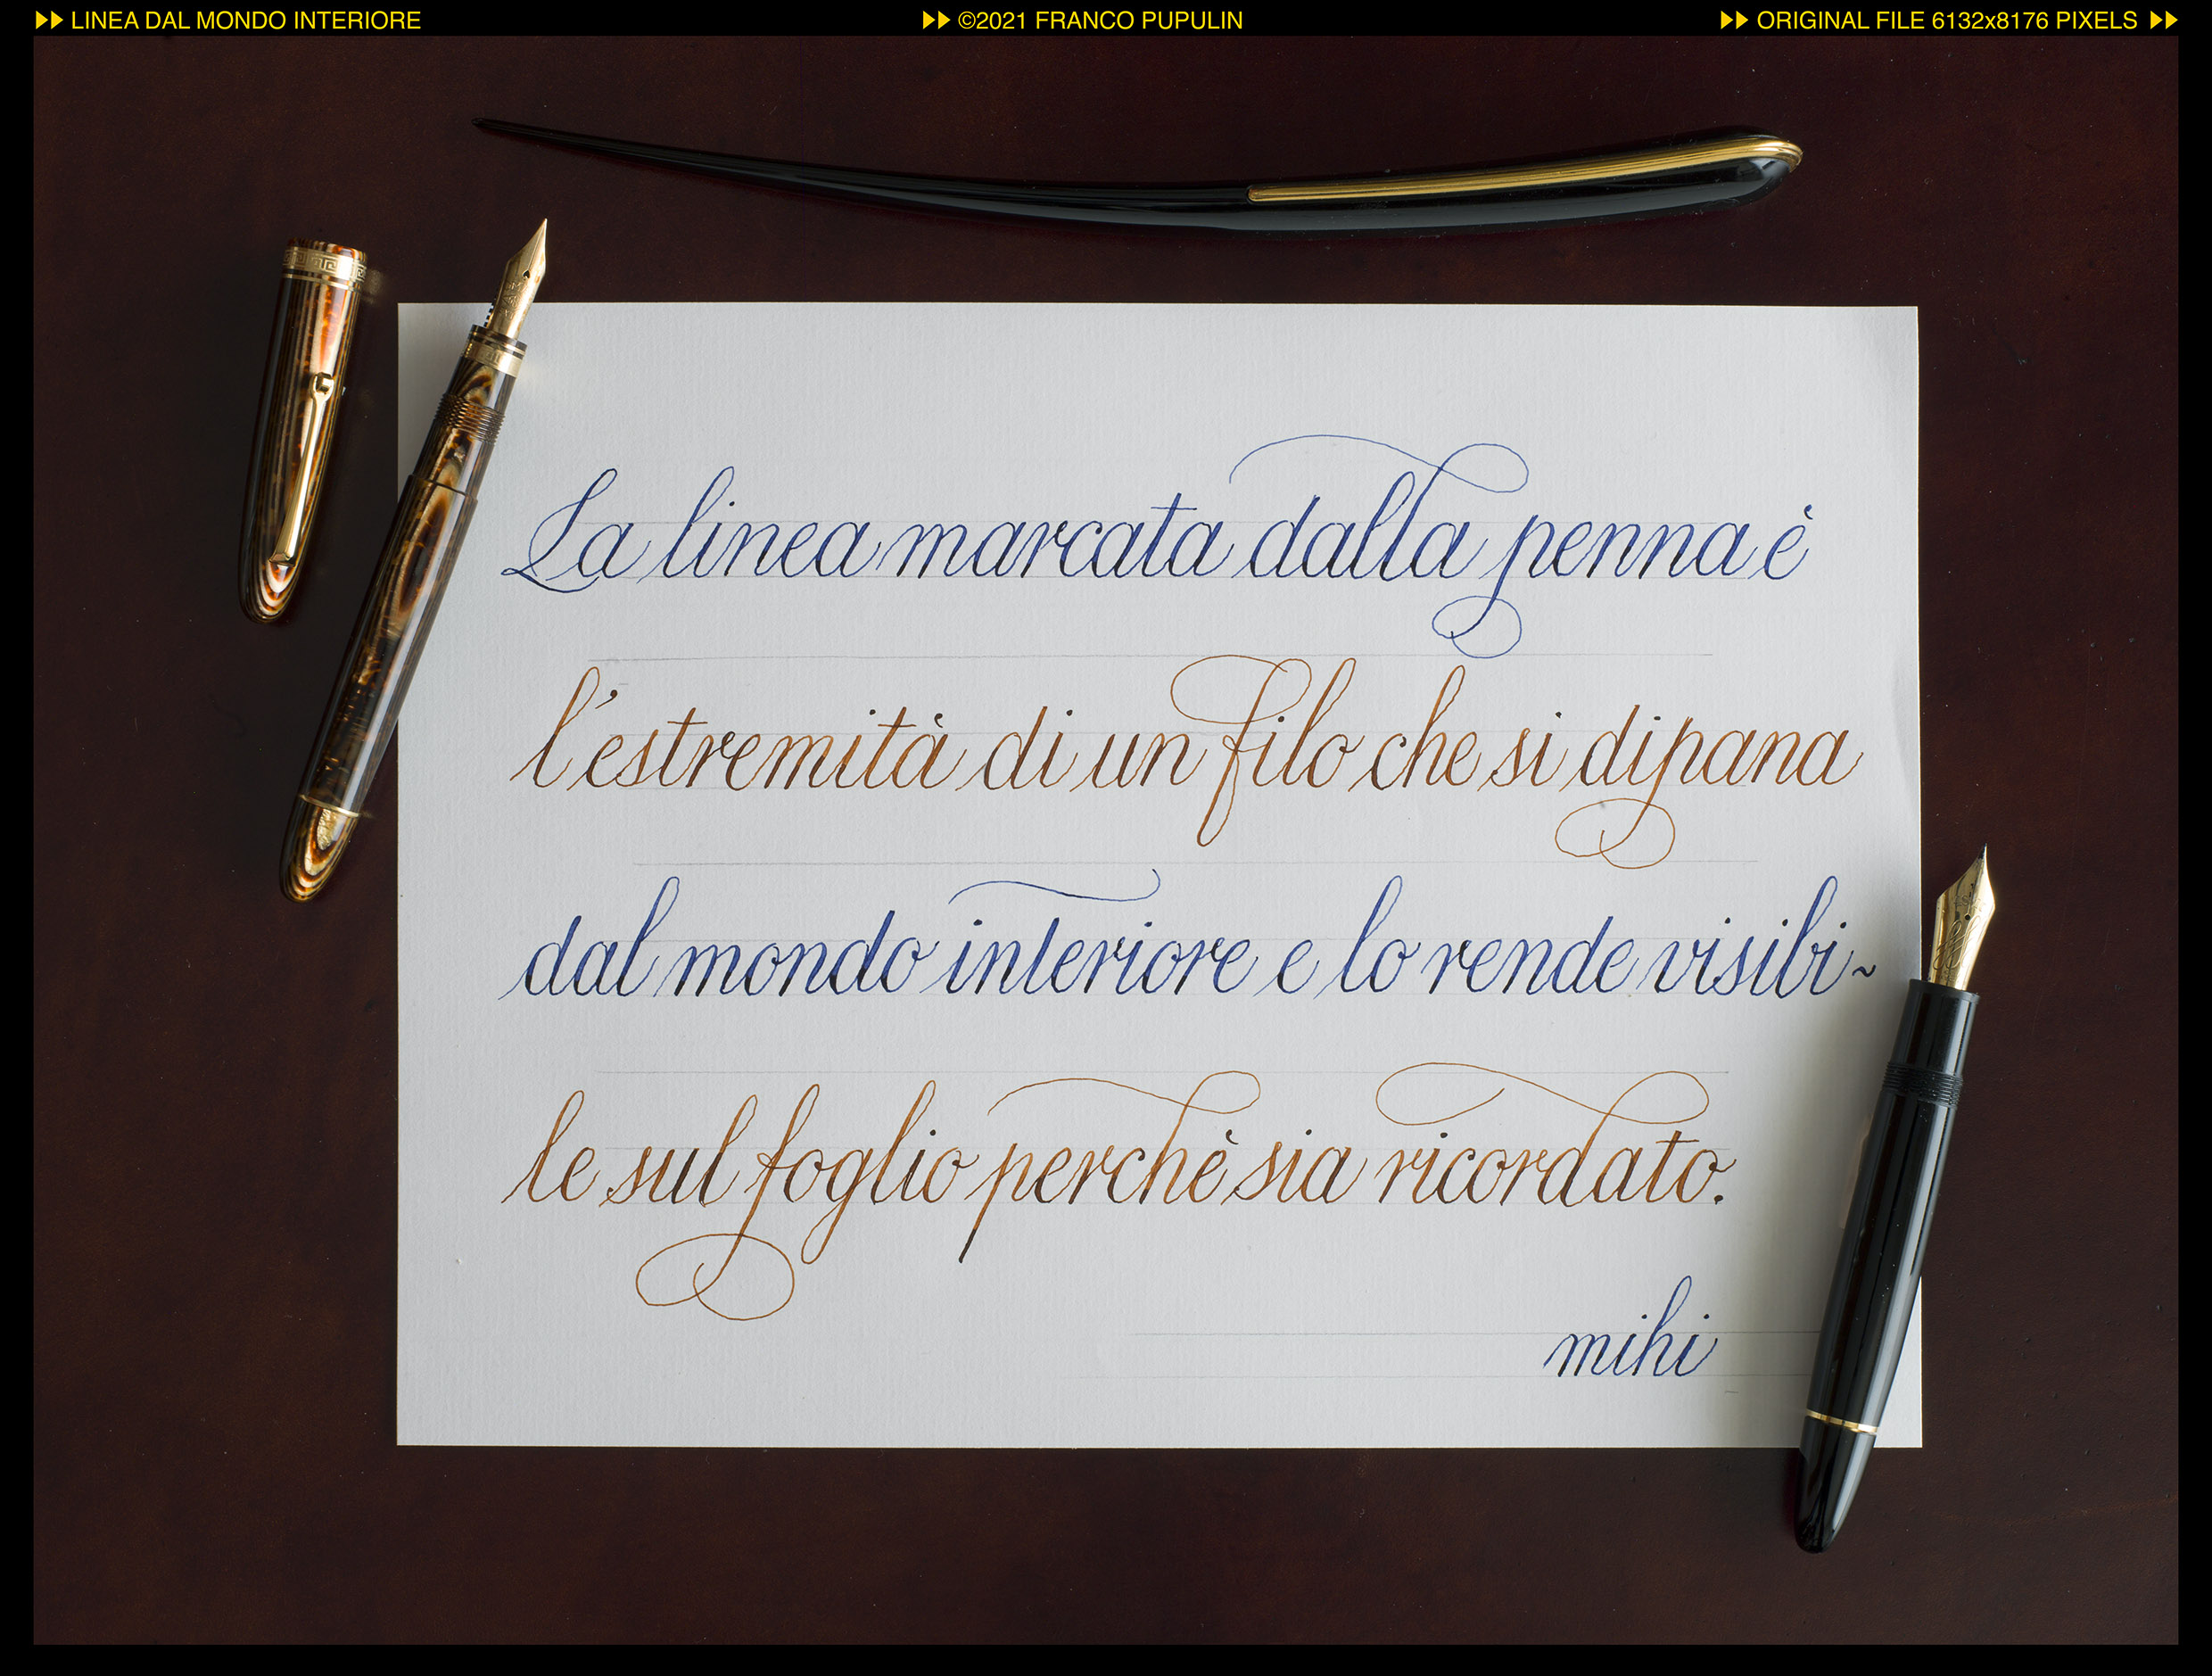 LINEA DAL MONDO INTERIORE ©2021 FRANCO PUPULIN ORIGINAL FILE 6132x8176 PIXELS
La linea marcata dalla penna è
l'estremità di un filo che si dipana
dal mondo interiore e lo rende visibi~
le sul foglio perchè sia ricordato.
mihi